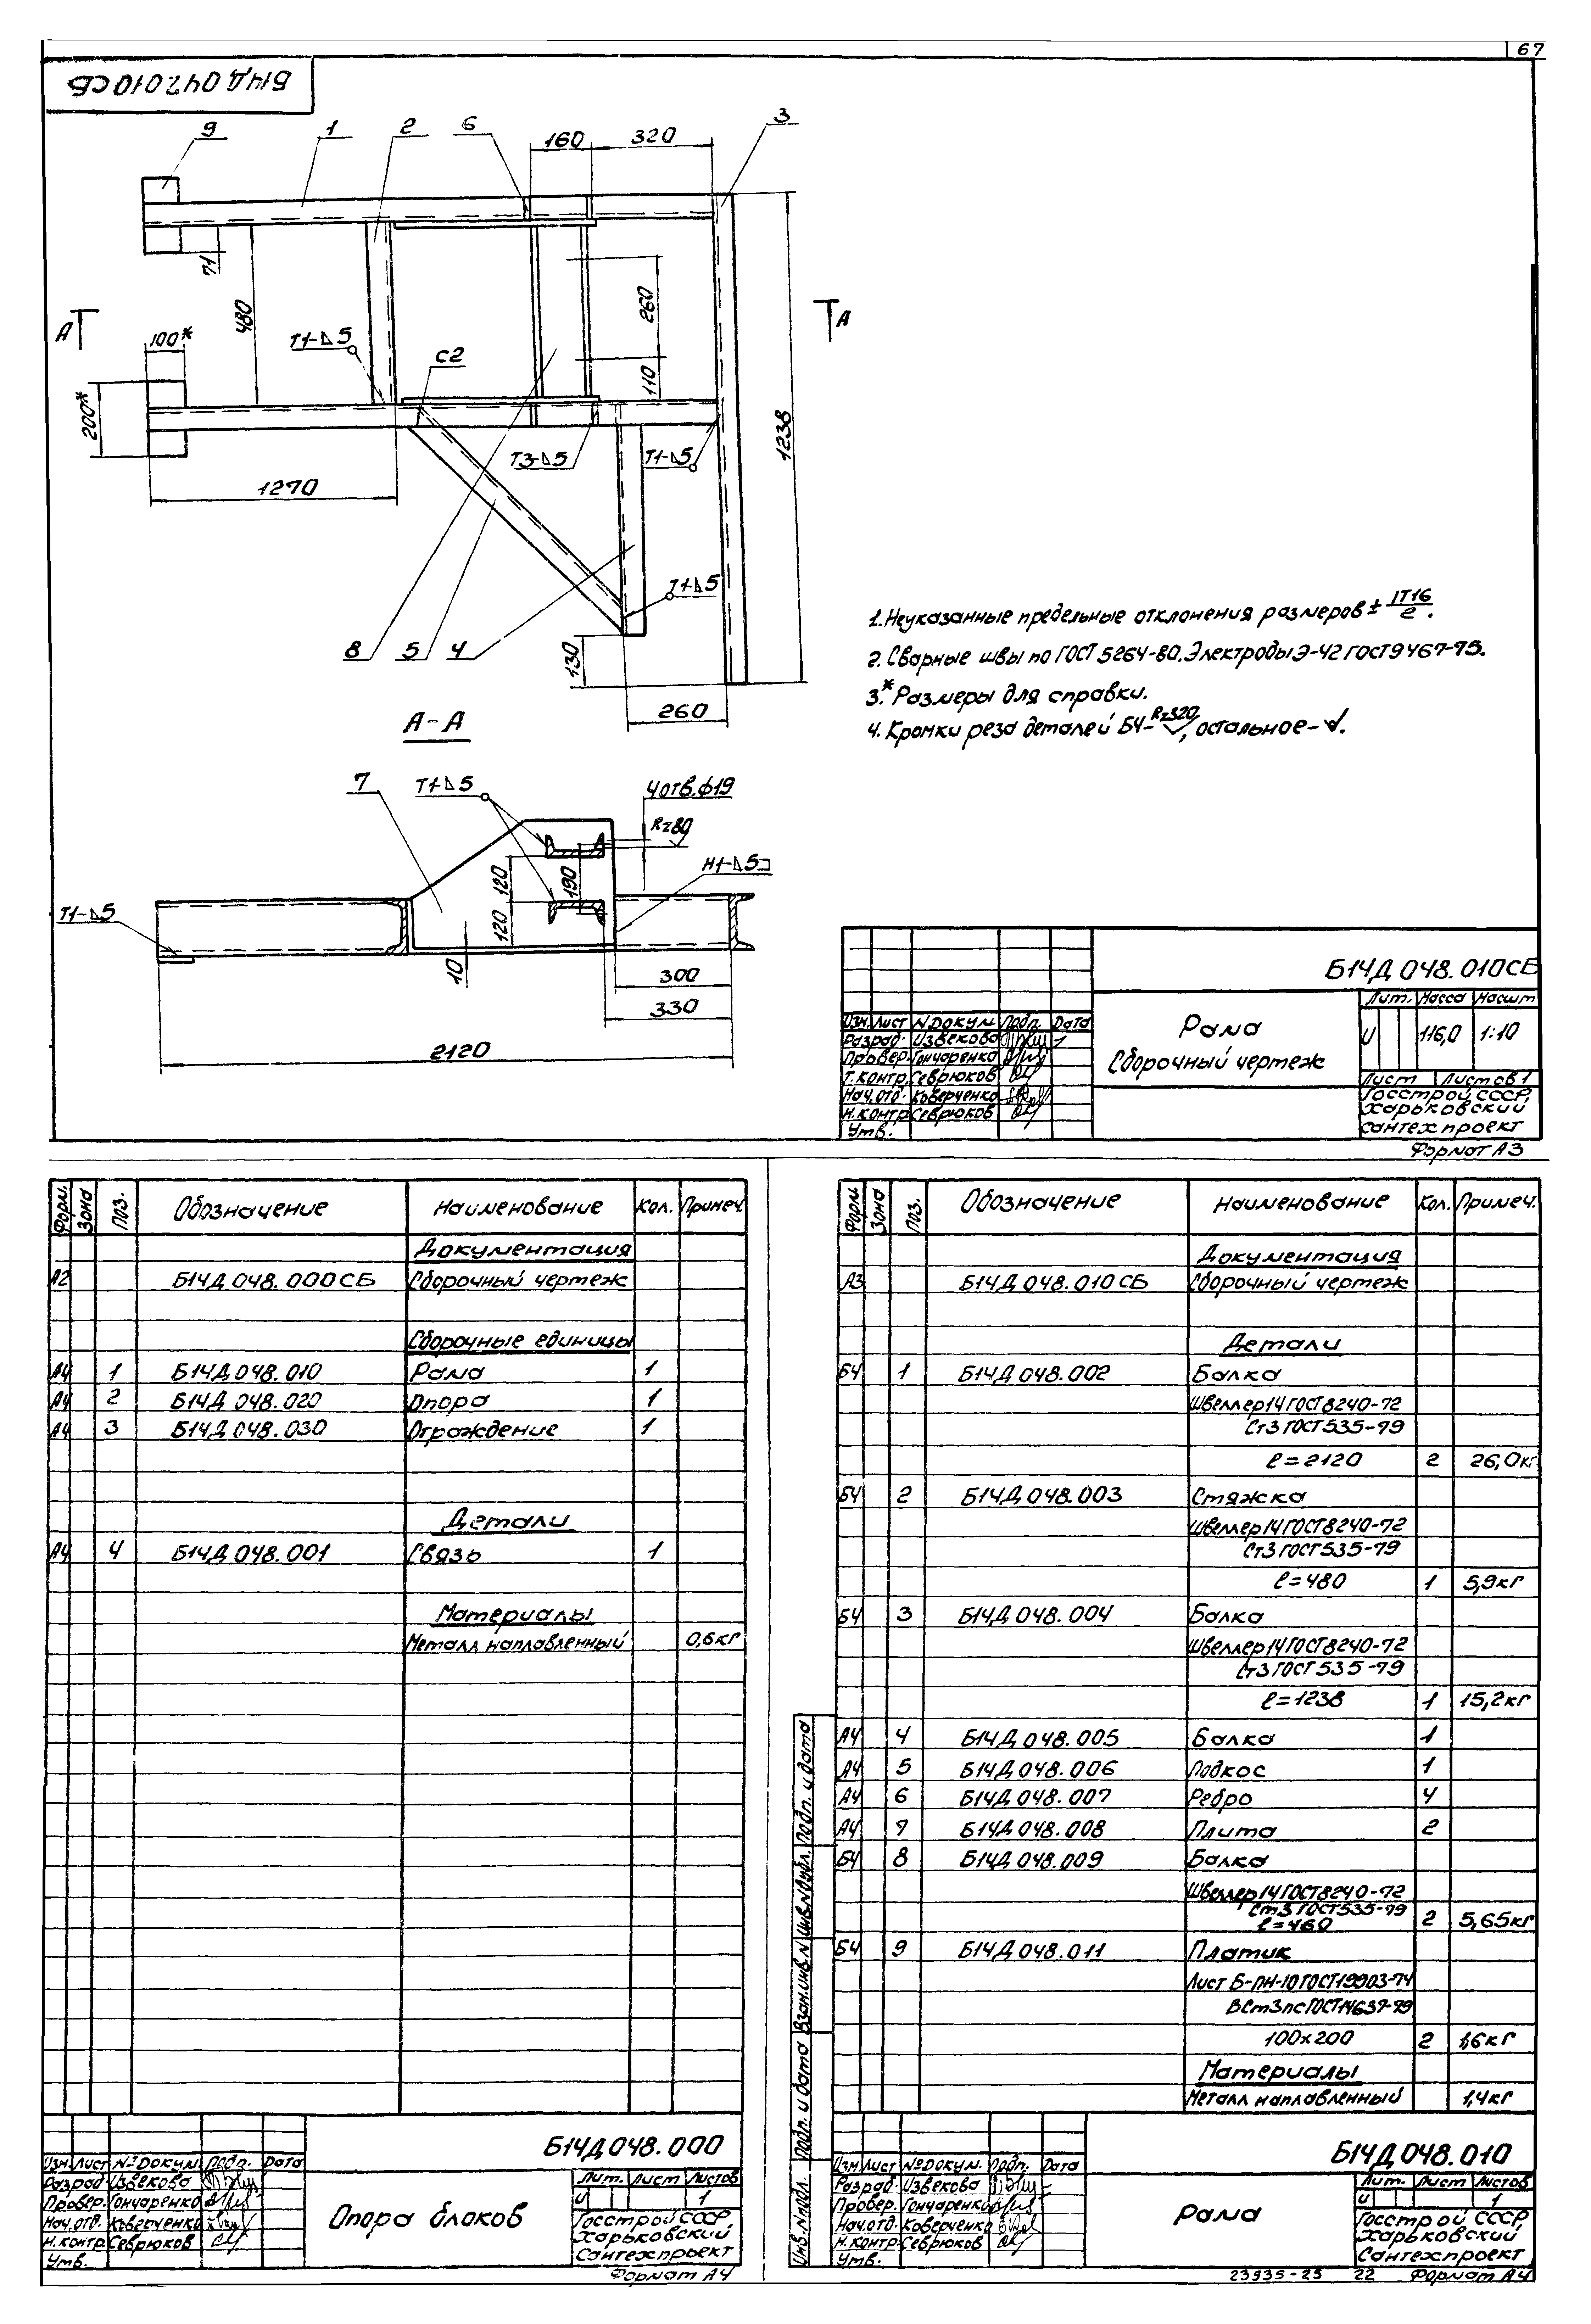 67
Б14Д 047.010СБ
9 1 2 6 160 320 3
71
480
260
110
А А
100*
200*
Т1-⊿5
С2
Т3-⊿5
Т1-⊿5
1238
1270
Т1-⊿5
8 5 4
130
260
1. Неуказанные предельные отклонения размеров ± IT16/2.
2. Сварные швы по ГОСТ 5264-80. Электроды Э-42 ГОСТ 9467-75.
3.* Размеры для справки.
4. Кромки реза деталей БЧ- Rz320, остальное-√.
А-А
7
Т1-⊿5
4 отв. ф19
Rz80
Н1-⊿5
120
190
120
Т1-⊿5
10
300
330
2120
Б14Д 048.010СБ
Рама
Сборочный чертеж
Лит. Масса Масшт
И 116,0 1:10
Лист Листов 1
Госстрой СССР
Харьковский
сантехпроект
Изм. Лист N Докум. Подп. Дата
Разраб. Извекова
Провер. Гончаренко
Т.контр. Севрюков
Нач.отд. Коверченко
Н.контр. Севрюков
Утв.
Формат А3
Форм. Зона Поз. Обозначение Наименование Кол. Примеч.
Документация
А2 Б14Д 048.000СБ Сборочный чертеж
Сборочные единицы
А4 1 Б14Д 048.010 Рама 1
А4 2 Б14Д 048.020 Опора 1
А4 3 Б14Д 048.030 Ограждение 1
Детали
А4 4 Б14Д 048.001 Связь 1
Материалы
Металл наплавленный 0,6кг
Б14Д 048.000
Изм. Лист N Докум. Подп. Дата
Разраб. Извекова
Провер. Гончаренко
Нач.отд. Коверченко
Н.контр. Севрюков
Утв.
Опора блоков
Лит. Лист Листов
И 1
Госстрой СССР
Харьковский
Сантехпроект
Формат А4
Форм Зона Поз. Обозначение Наименование Кол. Примеч.
Документация
А3 Б14Д 048.010СБ Сборочный чертеж
Детали
БЧ 1 Б14Д 048.002 Балка
Швеллер 14 ГОСТ 8240-72
Ст3 ГОСТ 535-79
ℓ=2120 2 26,0кг
БЧ 2 Б14Д 048.003 Стяжка
Швеллер 14 ГОСТ 8240-72
Ст3 ГОСТ 535-79
ℓ=480 1 5,9кг
БЧ 3 Б14Д 048.004 Балка
Швеллер 14 ГОСТ 8240-72
Ст3 ГОСТ 535-79
ℓ=1238 1 15,2кг
А4 4 Б14Д 048.005 Балка 1
А4 5 Б14Д 048.006 Подкос 1
А4 6 Б14Д 048.007 Ребро 4
А4 7 Б14Д 048.008 Плита 2
БЧ 8 Б14Д 048.009 Балка
Швеллер 14 ГОСТ 8240-72
Ст3 ГОСТ 535-79
ℓ=460 2 5,65кг
БЧ 9 Б14Д 048.011 Платик
Лист Б-ПН-10 ГОСТ 19903-74
ВСт3пс ГОСТ 14637-79
100х200 2 1,6кг
Материалы
Металл наплавленный 1,4кг
Инв.N подл. Подп. и дата Взам.инв.N Инв.N дубл. Подп. и дата
Б14Д 048.010
Изм. Лист N Докум. Подп. Дата
Разраб. Извекова
Провер. Гончаренко
Нач.отд. Коверченко
Н.контр. Севрюков
Утв.
Рама
Лит. Лист Листов
И 1
Госстрой СССР
Харьковский
Сантехпроект
23935-23 22 Формат А4